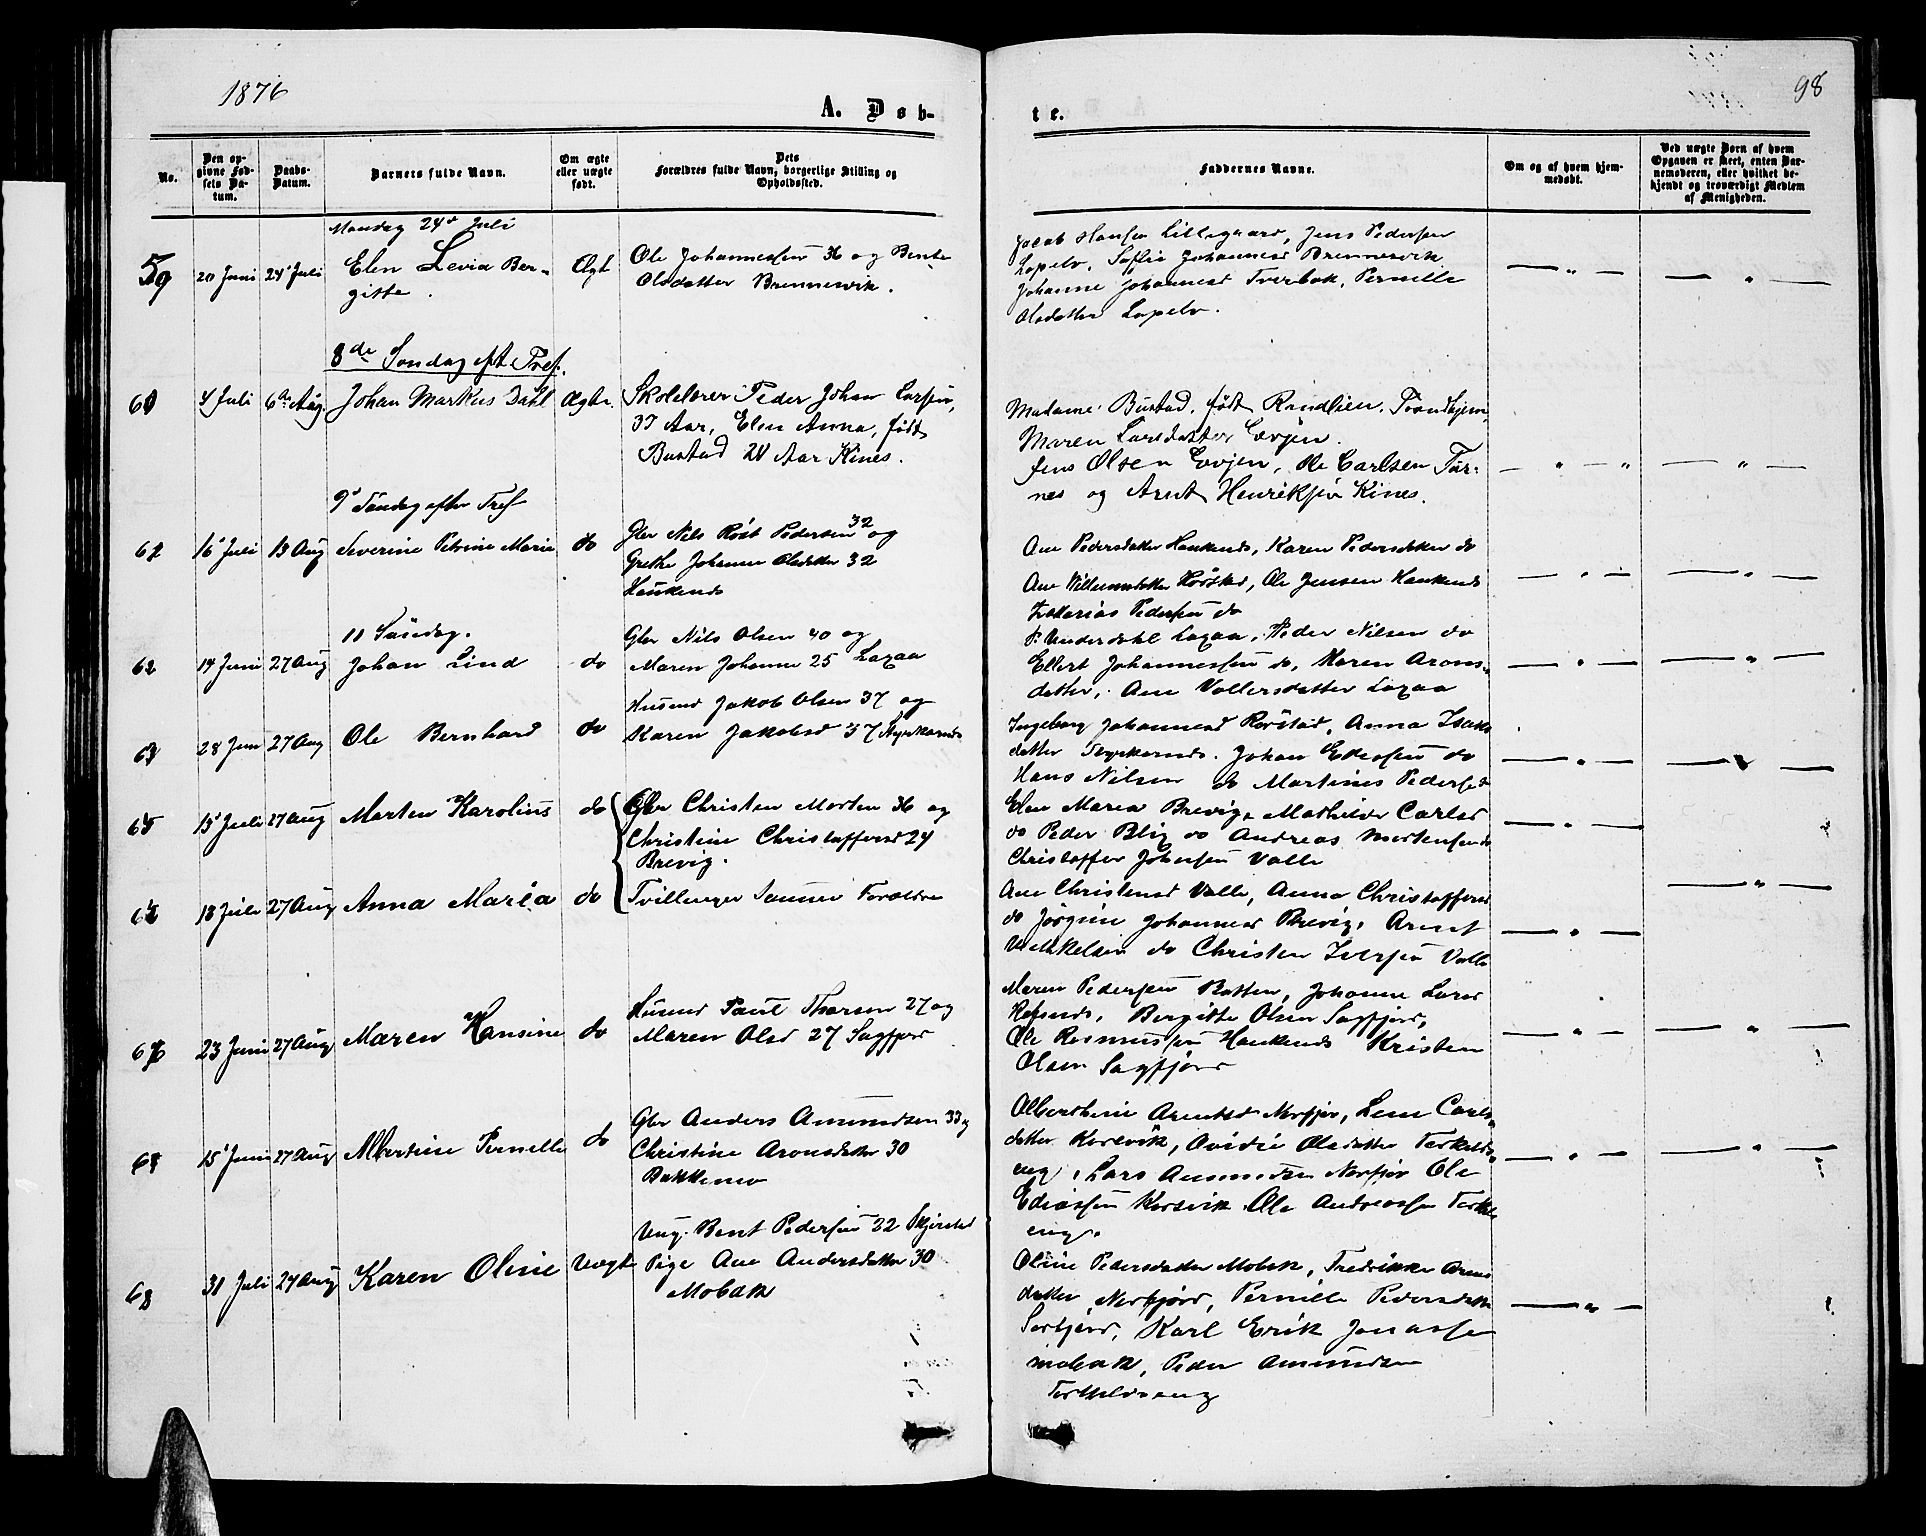 1876
98
A. Døb-
te.
No.
Den op-
givne Fød-
sels Da-
tum.
Daabs-
Datum.
Barnets fulde Navn.
Om ægte
eller uægte
født.
Dets
Forældres fulde Navn, borgerlige Stilling og
Opholdssted.
Faddernes Navne.
Om og af hvem hjem-
medøbt.
Ved uægte Børn af hvem
Opgaven er skeet, enten Bar-
nemoderen, eller hvilket be-
kjendt og troværdigt Medlem
af Menigheden.
Mandag 24de Juli
59 20 Juni 24' Juli Elen Levia Ber-
gitte.
Ægt
Ole Johannessen 36 og Bente
Olsdatter Brennesvik.
Jacob Hansen Lillegaard, Jens Pedersen
Lapelv, Sofie Johannesd Brennesvik
Johanne Johannesd Tverbak, Pernelle
Olsdatter Lapelv.
8de Søndag eft Tref.
60 4 Juli 6te Aug. Johan Markus Dahl Ægte.
Skolelærer Peder Johan Larsen,
37 Aar, Elen Anna, født
Bustad 24 Aar Kines.
Madame Bustad, født Randlien, Trondhjem,
Maren Larsdatter Evjen.
Jens Olsen Evjen, Ole Carlsen Tur-
nes og Arnt Henriksen Kines.
9' Søndag efter Tref
61 16' Juli 13 Aug Severine Petrine Marie do
Gbr Nils Røst Pedersen 32 og
Grethe Johanna Olsdatter 32
Haukenes
Ane Pedersdatter Haukenes, Karen Pedersdatter do
Ane Villumsdatter Hørstad, Ole Jensen Haukenes
Zakarias Pedersen do
11 Søndag.
62 14 Juni 27 Aug Johan Lind do
Gbr Nils Olsen 40 og
Maren Johanna 25 Laxaa
P. Underdahl Laxaa, Peder Nilsen do
Ellert Johannessen do, Maren Arons-
datter, Ane Vollersdatter Laxaa
63 28 Juni 27 Aug Ole Bernhard do
Husmd Jakob Olsen 37 og
Karen Jakobsd 37 Styrkesnes
Ingeborg Johannesd Rørstad, Anna Isaks
datter Styrkesnes. Johan Ediassen do
Hans Nilsen do Martinus Pedersen do
15' Juli 27 Aug Morten Karolius do
Gbr Christen Morten 36 og
Christine Christoffersd 24
Brevig.
Elen Maria Brevig, Mathilde Carlsd
do Peder Blix do Andreas Mortensen do
Christoffer Johnsen Valle
18 Juli 27 Aug Anna Maria do
Tvillinger Samme Forældre
Ane Christensd Valle, Anna Christoffersd
do Jørgine Johannesd Brevig, Arent
Mikkelsen do Christen Iversen Valle
23 Juni 27 Aug Maren Hansine do
Husmd Paul Thorsen 27 og
Maren Olsd 27 Sagfjord
Maren Pedersen Botten, Johanna Larsd
Refsnes, Bergitte Olsen Sagfjord,
Ole Rasmussen Haukenes Kristen
Olsen Sagfjord
15' Juni 27 Aug Albertine Pernelle do
Gbr Anders Amundsen 33 og
Christine Aronsdatter 30
Bakkemo
Albertine Arentsd Norfjor, Lene Carls-
datter Korsvik, Ovidie Olsdatter Torkilds-
eng, Lars Amundsen Norfjor Ole
Ediassen Korsvik Ole Andreassen Torkilds
eng.
68 31 Juli 27 Aug Karen Oline Uægt
Ung. Bent Pedersen 22 Skjerstad
Pige Ane Andersdatter 30
Mobak
Oline Pedersdatter Mobak, Fredrikke Arons
datter Norfjord, Pernille Pedersdatter
Sørfjord, Karl Erik Jonassen
Mobakk, Peder Amundsen
Torkildseng